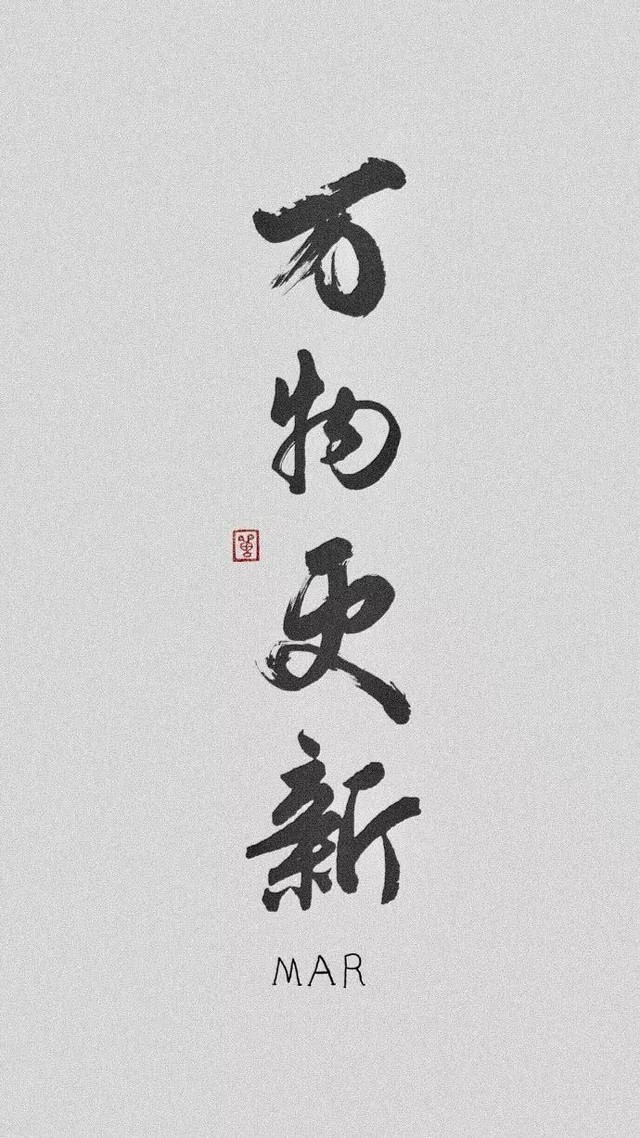 万物更新
MAR